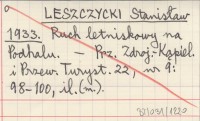 LESZCZYCKI Stanisław
1933. Ruch letniskowy na
Podhalu. — Prz. Zdroj.-Kąpiel.
i Przew. Turyst. 22, nr 9:
98-100, il. (m.).